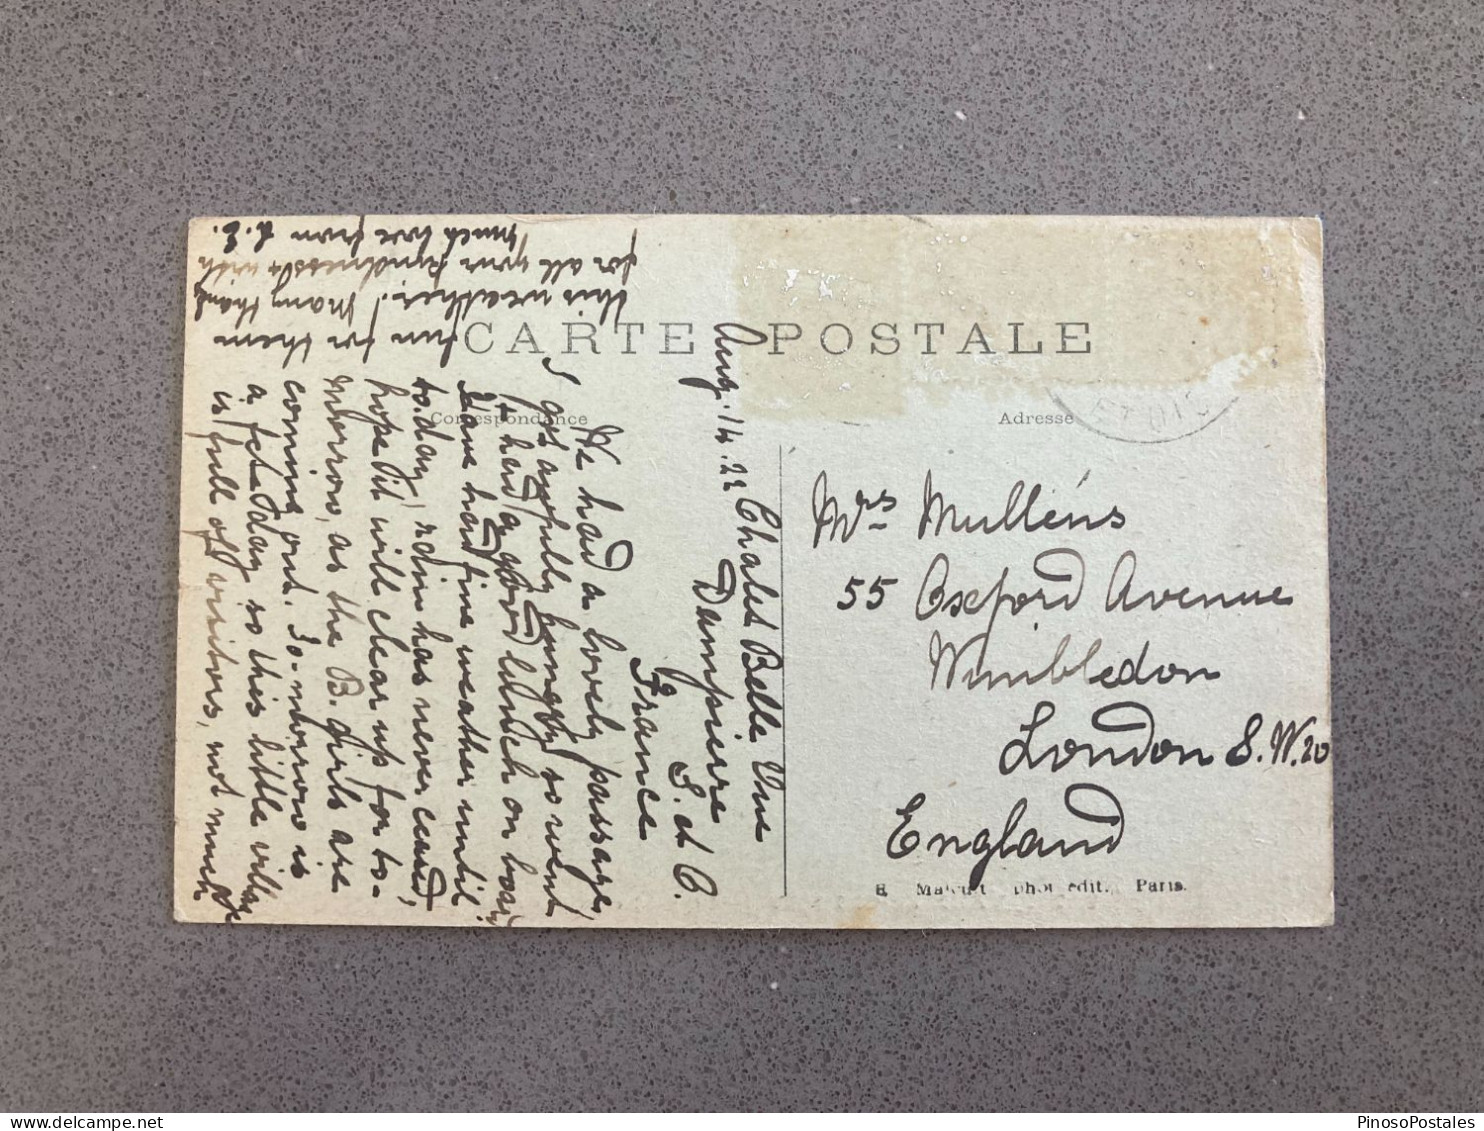 CARTE POSTALE
Correspondance
Adresse
Aug. 14. 22
Chalet Belle Vue
Dampierre
S. et O.
France
We had a lovely passage,
I got awfully hungry so went
& had a good lunch on board
Have had fine weather until
to-day, rain has never ceased,
hope it will clear up for to-
morrow, as the B. girls are
coming out. To-morrow is
a fete day so this little village
is full of visitors, not much
fun for them
this weather! Many thanks
for all your kyndness & with
much love from L. E.
Mrs Mullens
55 Oxford Avenue
Wimbledon
London S. W. 20
England
phot edit., Paris.
PinosoPostales